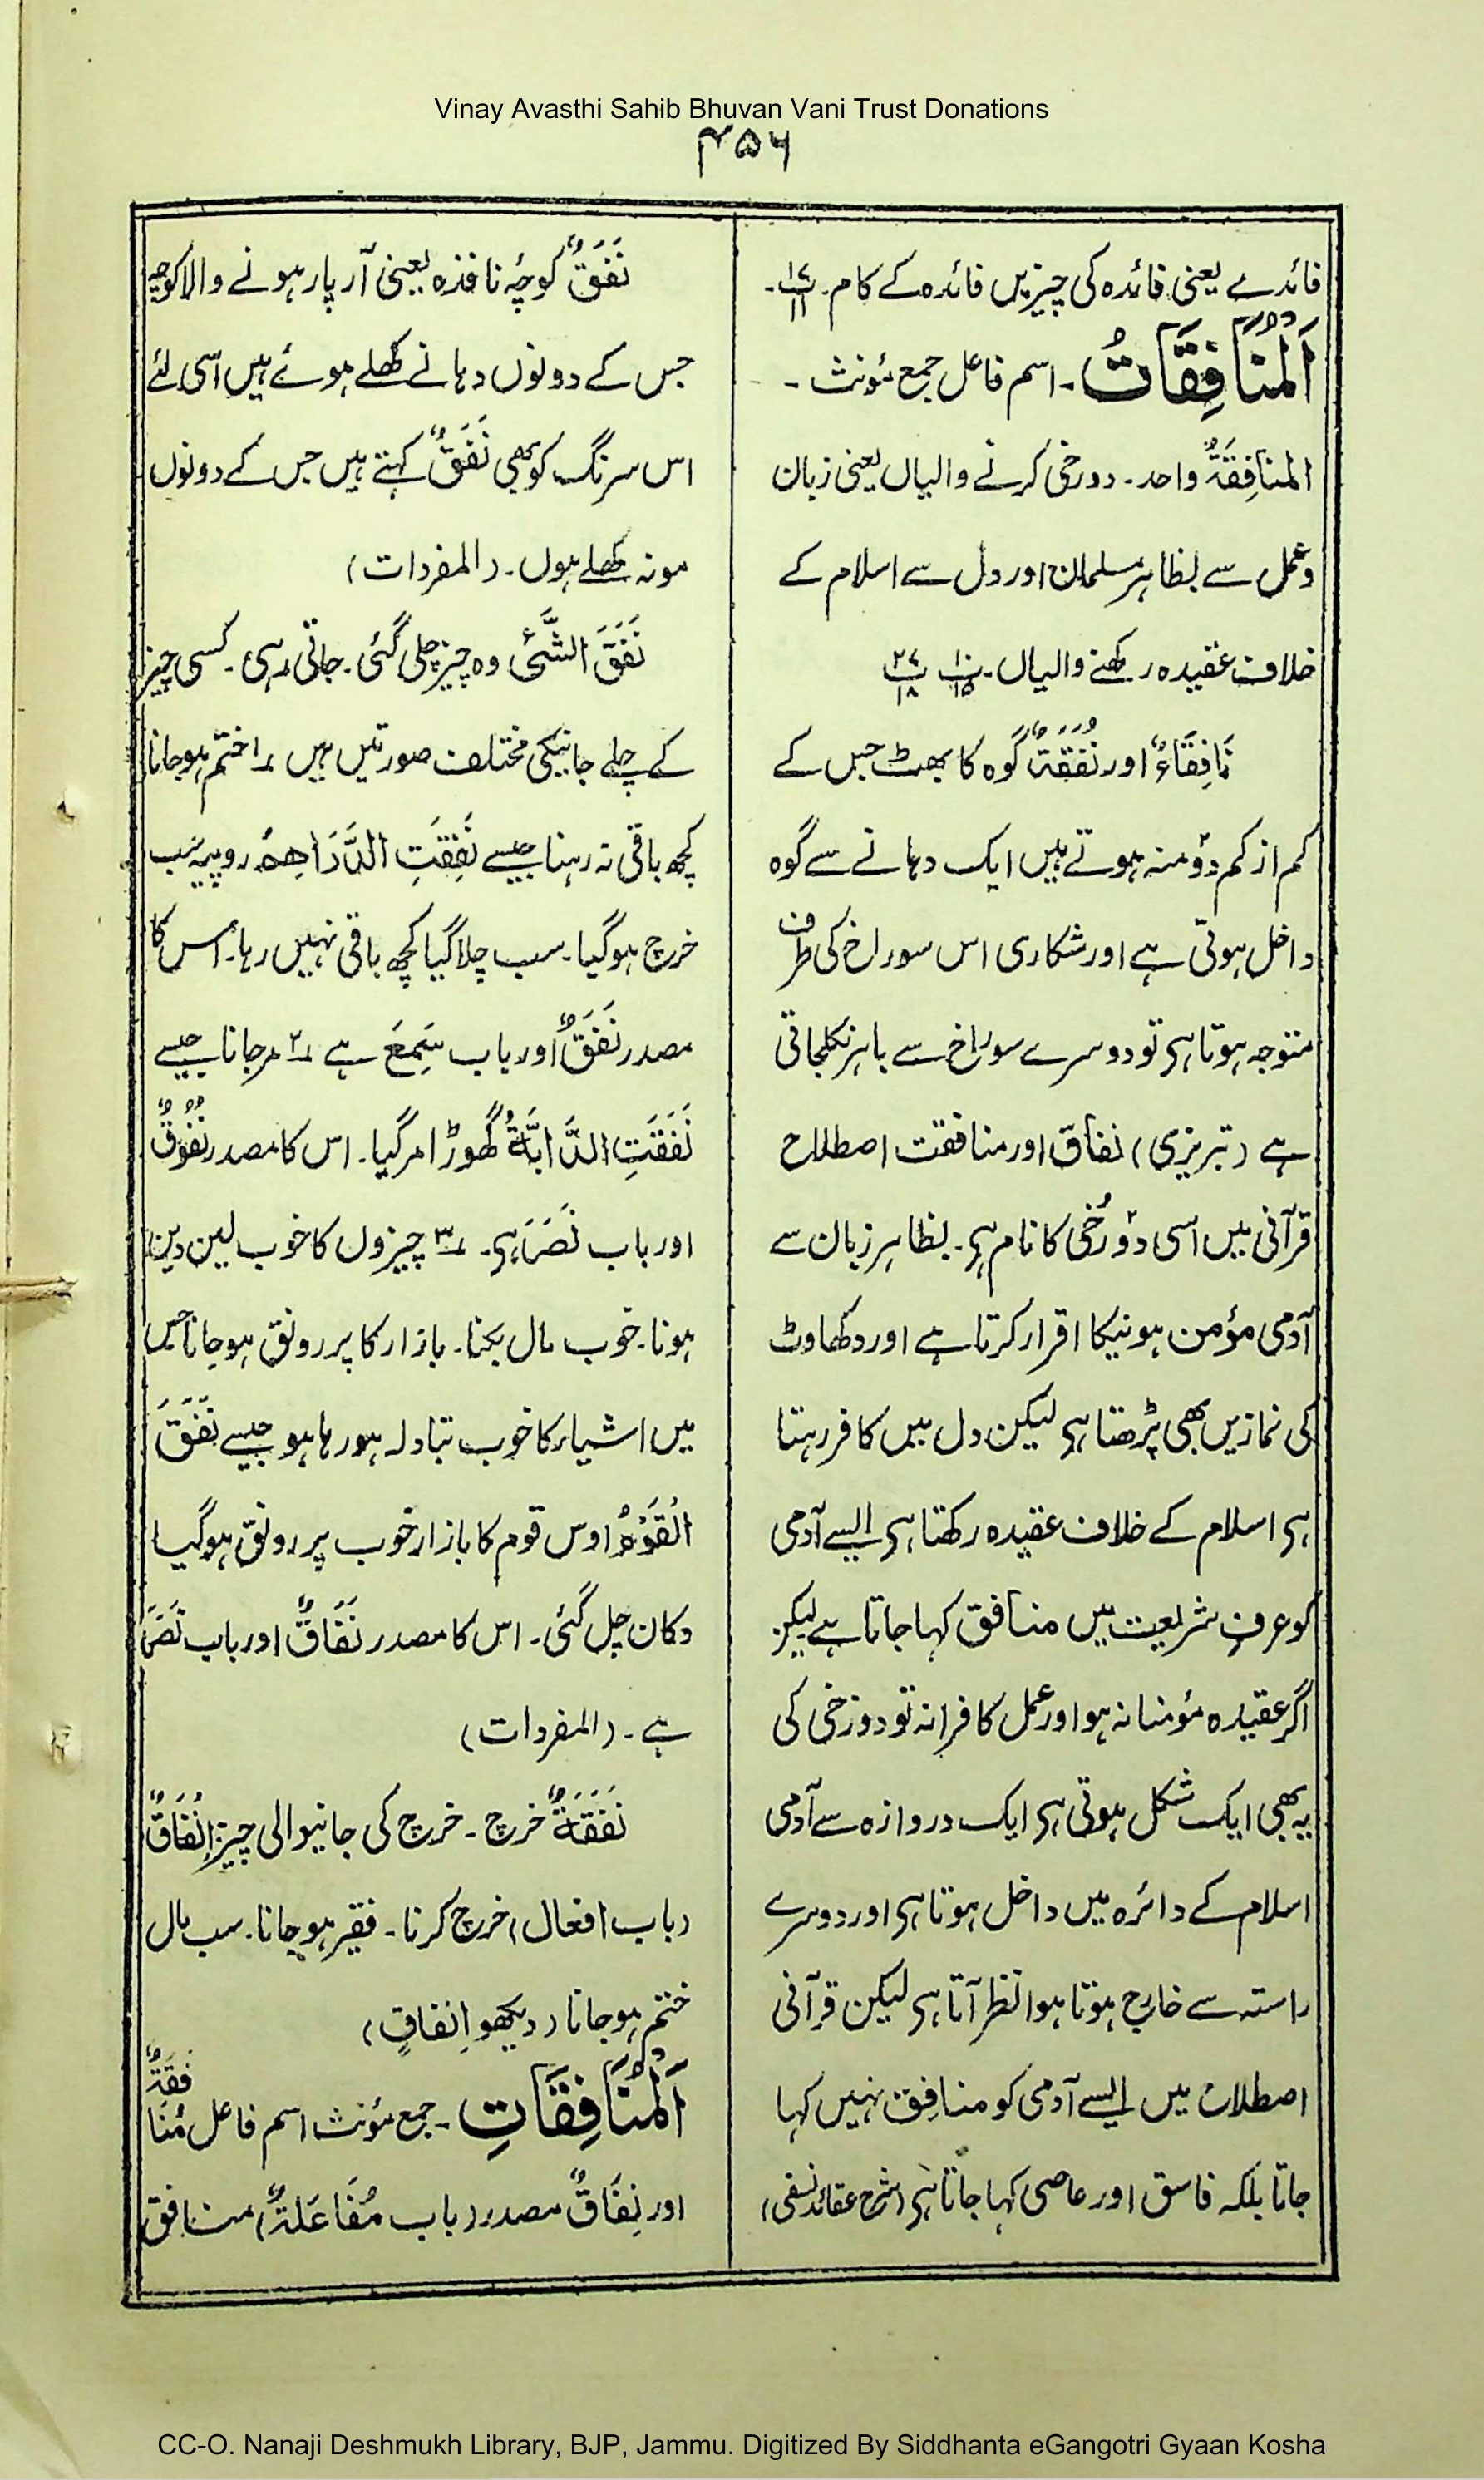 Vinay Avasthi Sahib Bhuvan Vani Trust Donations
۴۵۶
فائدے یعنی فائدہ کی چیزیں فائدہ کے کام۔
اَلْمُنَافِقَاتُ۔ اسم فاعل جمع مؤنث۔
المنافِقَۃُ واحد۔ دورخی کرنے والیاں یعنی زبان
وعمل سے بظاہر مسلمان اور دل سے اسلام کے
خلاف عقیدہ رکھنے والیاں۔ پ۱۰ ۱۵ پ۲۷ ۱۸
نَافِقَاءُ اور نُفَقَۃٌ گوہ کا بھٹ جس کے
کم از کم دو منہ ہوتے ہیں ایک دہانے سے گوہ
داخل ہوتی ہے اور شکاری اس سوراخ کی طرف
متوجہ ہوتا ہی تو دوسرے سوراخ سے باہر نکلجاتی
ہے (تبریزی) نفاق اور منافقت اصطلاح
قرآنی میں اسی دو رُخی کا نام ہی۔ بظاہر زبان سے
آدمی مؤمن ہونیکا اقرار کرتا ہے اور دکھاوٹ
کی نمازیں بھی پڑھتا ہی لیکن دل میں کافر رہتا
ہی اسلام کے خلاف عقیدہ رکھتا ہی ایسے آدمی
کو عرفِ شریعت میں منافق کہا جاتا ہے لیکن
اگر عقیدہ مؤمنانہ ہو اور عمل کافرانہ تو دورخی کی
یہ بھی ایک شکل ہوتی ہی ایک دروازہ سے آدمی
اسلام کے دائرہ میں داخل ہوتا ہی اور دوسرے
راستہ سے خارج ہوتا ہوا نظر آتا ہی لیکن قرآنی
اصطلاح میں ایسے آدمی کو منافِق نہیں کہا
جاتا بلکہ فاسق اور عاصی کہا جاتا ہی (شرح عقائد نسفی)
نَفَقٌ کوچۂ نافذہ یعنی آر پار ہونے والا کوچہ
جس کے دونوں دہانے کھلے ہوئے ہیں اسی لئے
اس سرنگ کو بھی نَفَقٌ کہتے ہیں جس کے دونوں
مونہ کھلے ہوں۔ (المفردات)
نَفَقَ الشَّیُٔ وہ چیز چلی گئی۔ جاتی رہی۔ کسی چیز
کے چلے جانیکی مختلف صورتیں ہیں ۱؎ ختم ہوجانا
کچھ باقی نہ رہنا جیسے نَفِقَتِ الدَّرَاهِمُ روپیہ سب
خرچ ہوگیا۔ سب چلا گیا کچھ باقی نہیں رہا۔ اس کا
مصدر نَفَقٌ اور باب سَمِعَ ہے ۲؎ مرجانا جیسے
نَفَقَتِ الدَّابَّۃُ گھوڑا مرگیا۔ اس کا مصدر نُفُوْقٌ
اور باب نَصَرَ ہی۔ ۳؎ چیزوں کا خوب لین دین
ہونا۔ خوب مال بکنا۔ بازار کا پر رونق ہوجانا جس
میں اشیاء کا خوب تبادلہ ہورہا ہو جیسے نَفَقَ
الْقَوْمُ اوس قوم کا بازار خوب پر رونق ہوگیا
دکان چل گئی۔ اس کا مصدر نَفَاقٌ اور باب نَصَرَ
ہے۔ (المفردات)
نَفَقَۃٌ خرچ۔ خرچ کی جانیوالی چیز اِنْفَاقٌ
(باب افعال) خرچ کرنا۔ فقیر ہوجانا۔ سب مال
ختم ہوجانا (دیکھو اِنفاقٍ)
اَلْمُنَافِقَاتِ۔ جمع مؤنث اسم فاعل مُنَافِقَۃٌ
اور نِفَاقٌ مصدر (باب مُفَاعَلَۃٌ) منافق
CC-O. Nanaji Deshmukh Library, BJP, Jammu. Digitized By Siddhanta eGangotri Gyaan Kosha